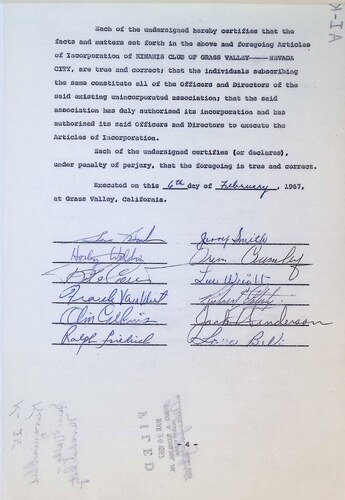 Each of the undersigned hereby certifies that the
facts and matters set forth in the above and foregoing Articles
of Incorporation of KIWANIS CLUB OF GRASS VALLEY----NEVADA
CITY, are true and correct; that the individuals subscribing
the same constitute all of the Officers and Directors of the
said existing unincorporated association; that the said
association has duly authorized its incorporation and has
authorized its said Officers and Directors to execute the
Articles of Incorporation.
Each of the undersigned certifies (or declares),
under penalty of perjury, that the foregoing is true and correct.
Executed on this 6th day of February, 1967,
at Grass Valley, California.
Jerry Smith
Orein Crumley
Lee Wyatt
Frank
Olin Calkins
Jack Henderson
Ralph
- 4 -
FILED